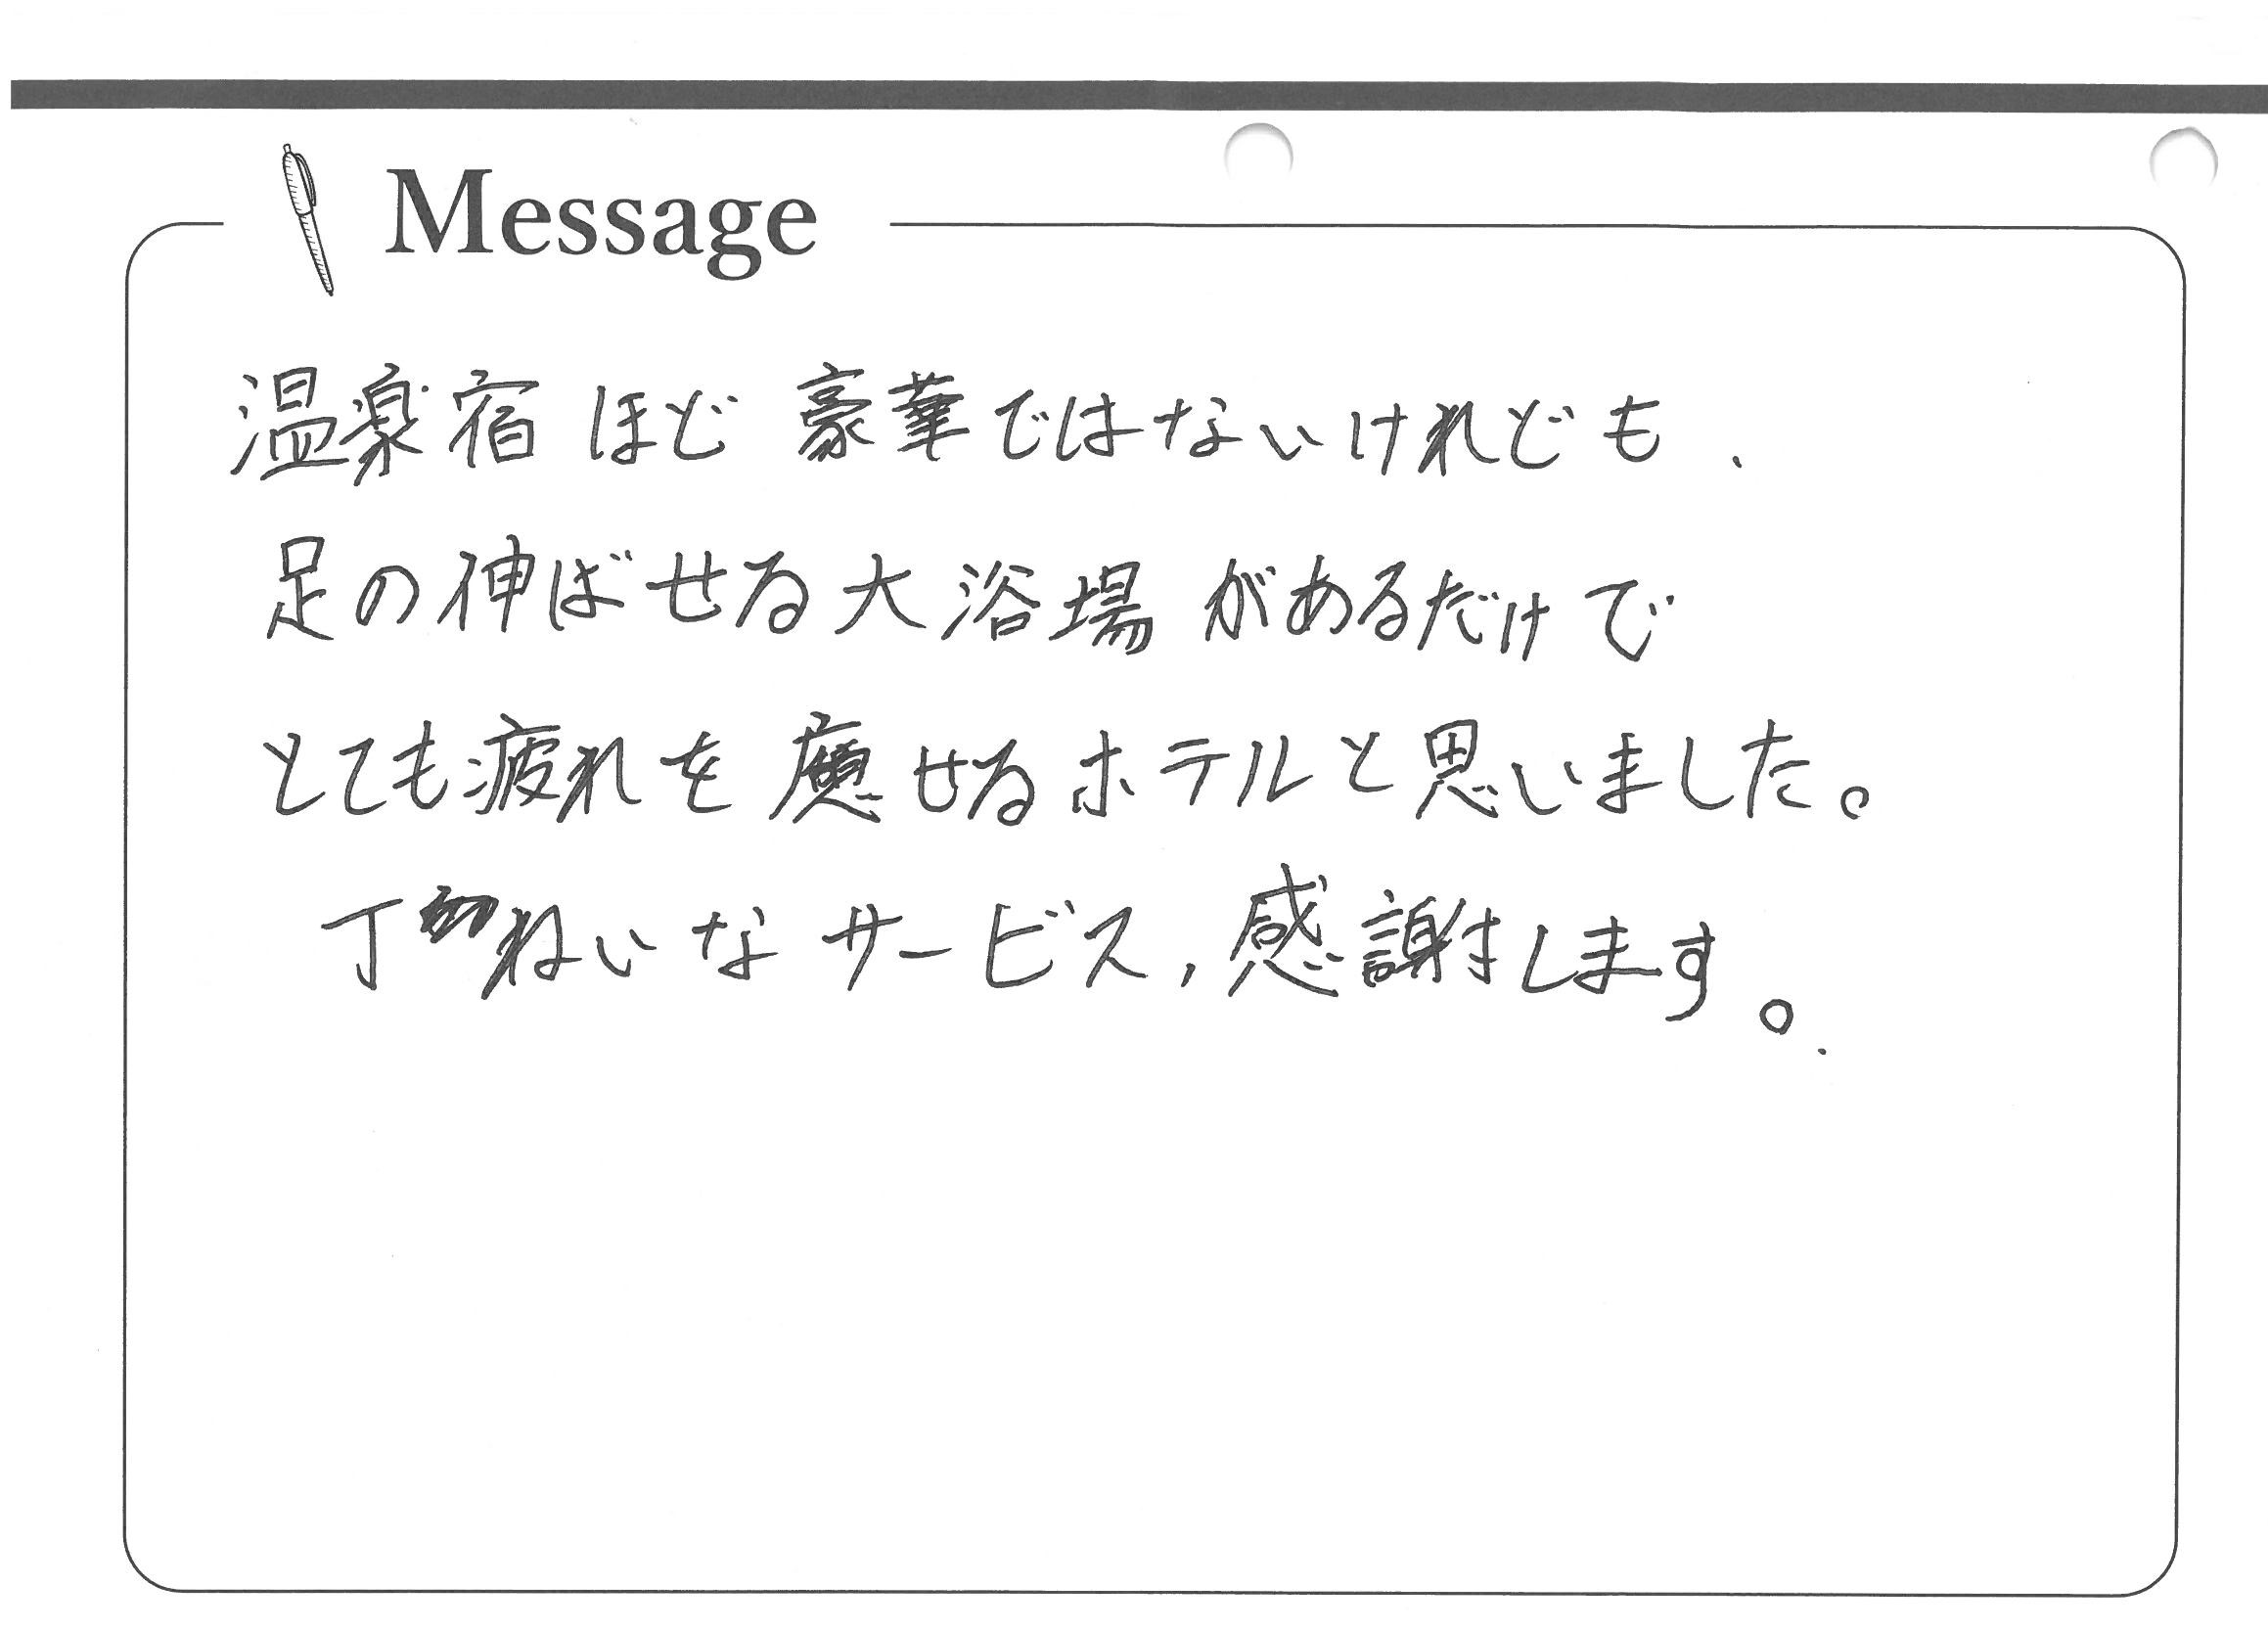 Message
温泉宿ほど豪華ではないけれども、
足の伸ばせる大浴場があるだけで
とても疲れを癒せるホテルと思いました。
丁ねいなサービス、感謝します。